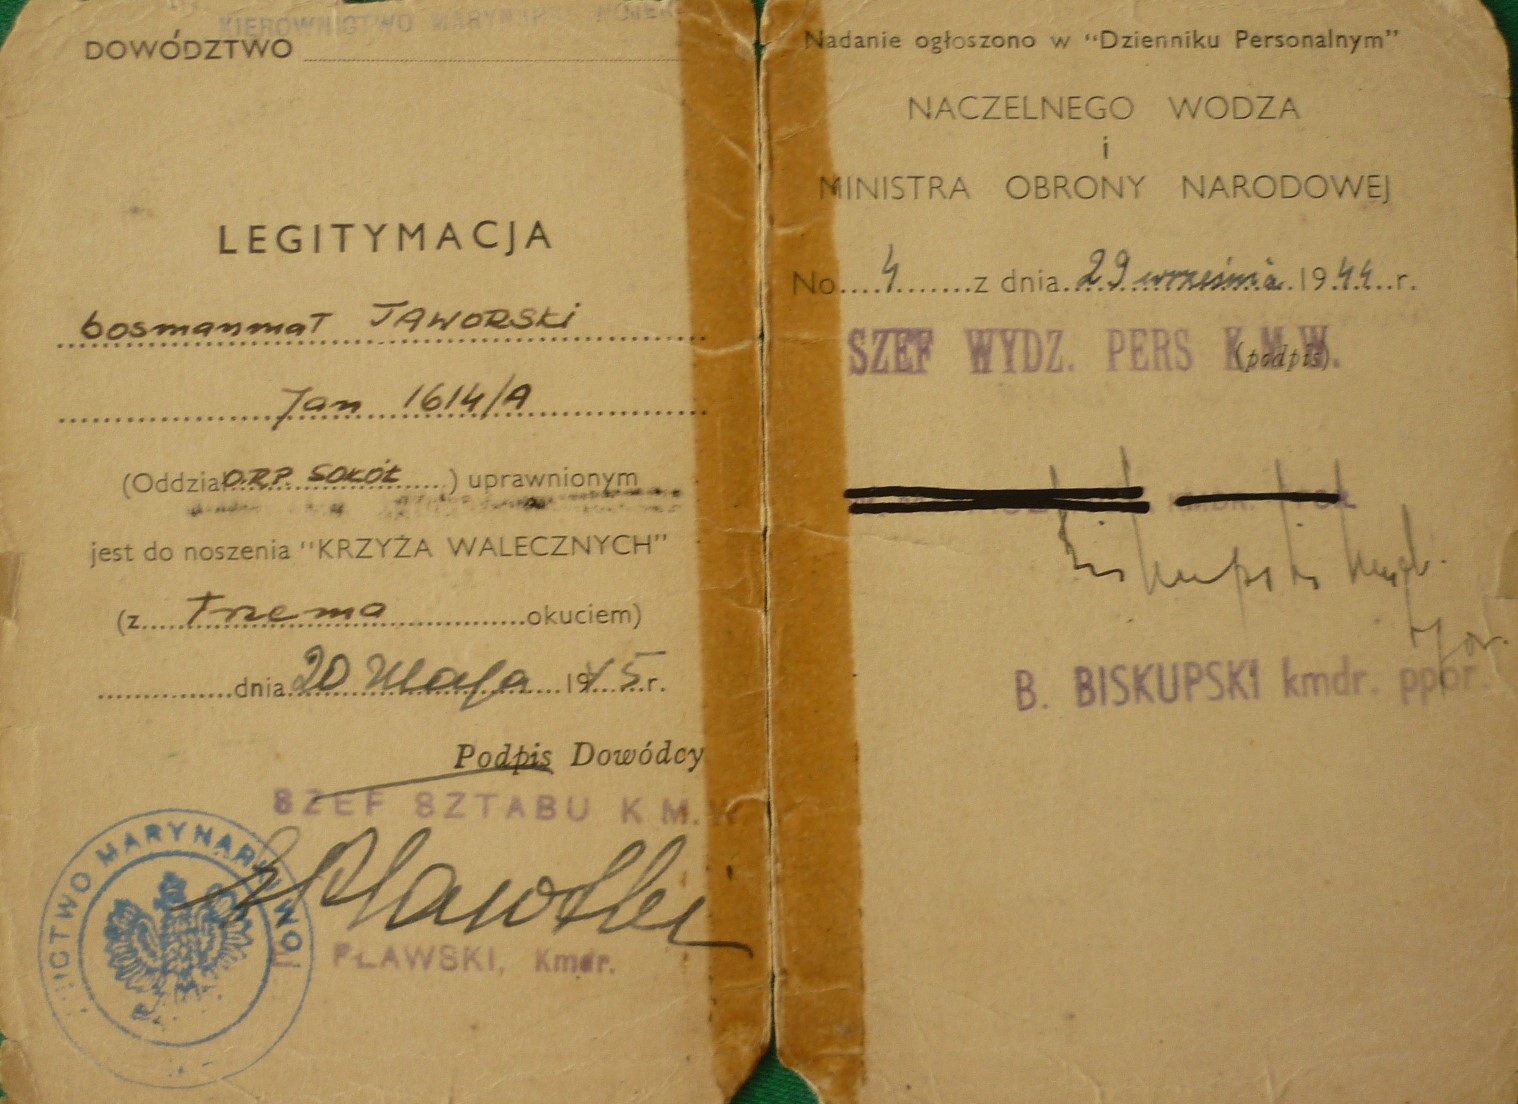 KIEROWNICTWO MARYNARKI WOJEN
DOWÓDZTWO
LEGITYMACJA
bosmanmat JAWORSKI
Jan 1614/A
(Oddział O.R.P. SOKÓŁ) uprawnionym
jest do noszenia "KRZYŻA WALECZNYCH"
(z trzema okuciem)
dnia 20 Maja 1945 r.
Podpis Dowódcy
SZEF SZTABU K M.W
PŁAWSKI, Kmdr.
NICTWO MARYNARKI WOJ
Nadanie ogłoszono w "Dzienniku Personalnym"
NACZELNEGO WODZA
i
MINISTRA OBRONY NARODOWEJ
No 4 z dnia 29 września 1944 r.
SZEF WYDZ. PERS K.M.W.
(podpis)
KMDR.
Biskupski kmdr.
ppor.
B. BISKUPSKI kmdr. ppor.